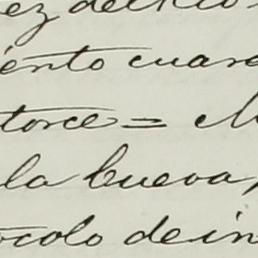 ez del
ento cuar
torce = M
la Cueva,
ocolo de in